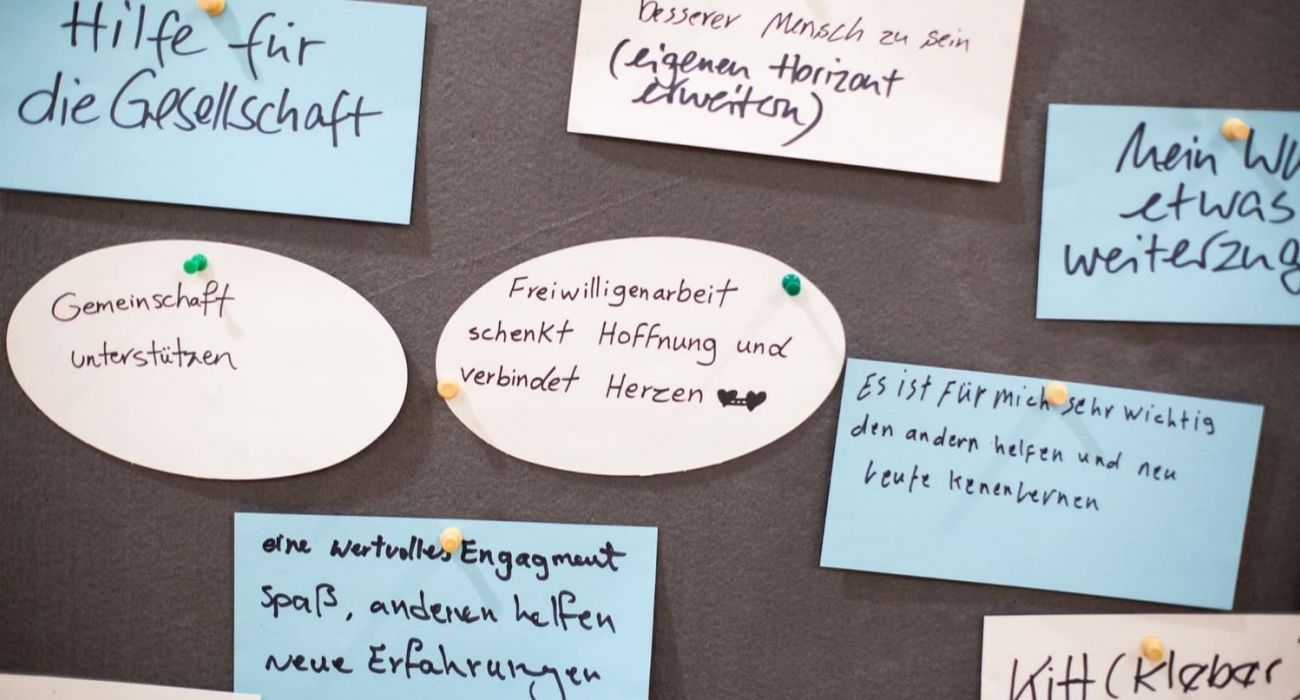 Hilfe für
die Gesellschaft
besserer Mensch zu sein
(eigenen Horizont
erweitern)
Mein
etwas
Gemeinschaft
unterstützen
Freiwilligenarbeit
schenkt Hoffnung und
verbindet Herzen
Es ist für mich sehr wichtig
den andern helfen und neu
leute kenenlernen
eine wertvolles Engagment
Spaß, anderen helfen
neue Erfahrungen
Kitt (Kleber